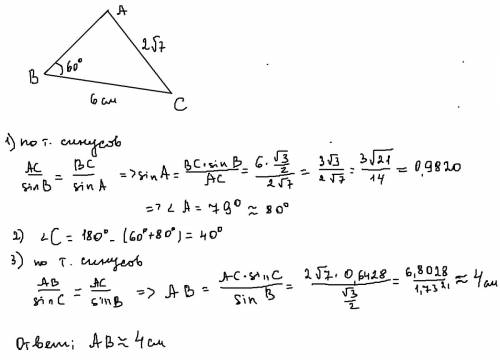 A
2√7
B
60°
6 см
C
1) по т. синусов
AC/sinB = BC/sinA => sinA = BC·sinB/AC = 6·√3/2/2√7 = 3√3/2√7 = 3√21/14 = 0,9820
=> ∠A = 79° ≈ 80°
2) ∠C = 180° - (60°+80°) = 40°
3) по т. синусов
AB/sinC = AC/sinB => AB = AC·sinC/sinB = 2√7·0,6428/√3/2 = 6,8028/1,732 ≈ 4 см
Ответ; AB ≈ 4 см